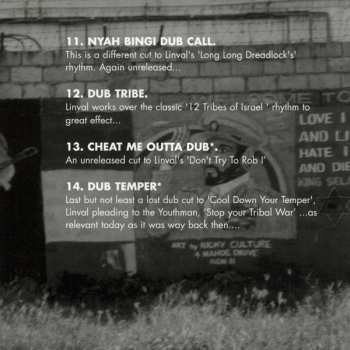 11. NYAH BINGI DUB CALL.
This is a different cut to Linval's 'Long Long Dreadlock's'
rhythm. Again unreleased...
12. DUB TRIBE.
Linval works over the classic '12 Tribes of Israel ' rhythm to
great effect...
13. CHEAT ME OUTTA DUB*.
An unreleased cut to Linval's 'Don't Try To Rob I'
14. DUB TEMPER*
Last but not least a lost dub cut to 'Cool Down Your Temper',
Linval pleading to the Youthman, 'Stop your Tribal War' ...as
relevant today as it was way back then....
ME TO
LOVE I
AND LI
HATE I
AND DIE
KING SELA
ART by RICKY CULTURE
4 MAHOE DRIVE